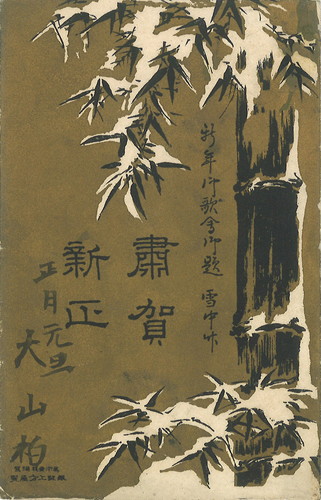 新年御歌会御題 雪中竹
肅賀
新正
正月元旦
大山柏